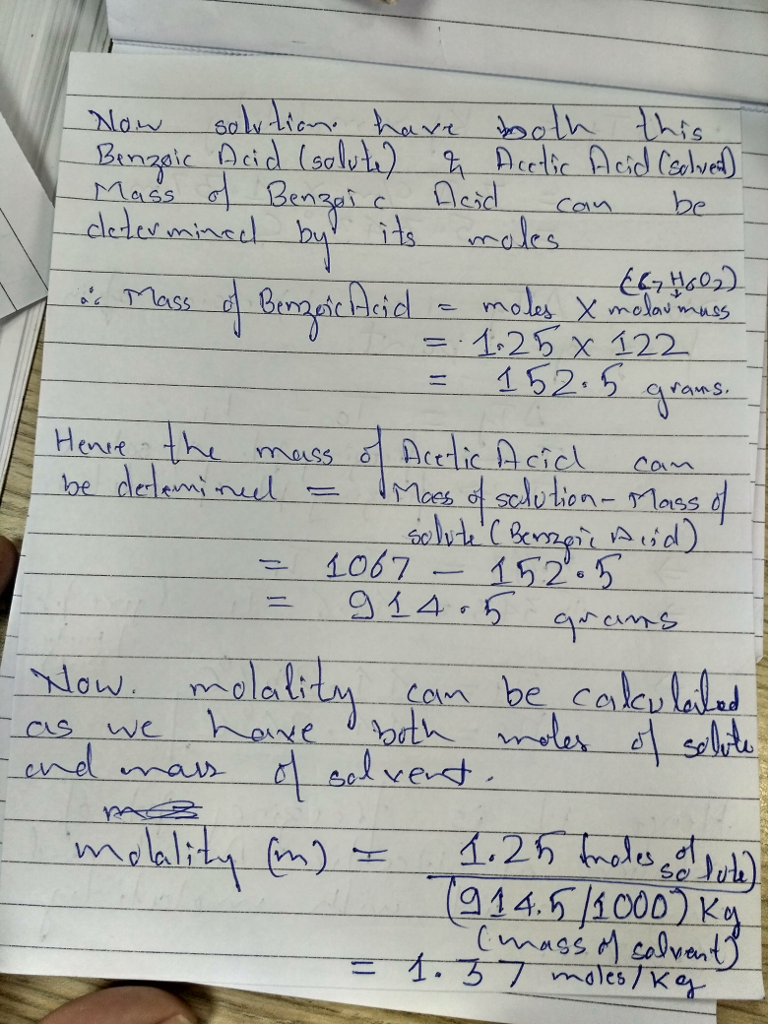 Now solution have both this
Benzoic Acid (solute) & Acetic Acid (solvent)
Mass of Benzoic Acid can be
determined by its moles
(C7H6O2)
∴ Mass of Benzoic Acid = moles X molar mass
= 1.25 X 122
= 152.5 grams.
Hence the mass of Acetic Acid can
be detemined = Mass of solution - Mass of
solute (Benzoic Acid)
= 1067 - 152.5
= 914.5 grams
Now. molality can be calculated
as we have both moles of solute
and mass of solvent.
molality (m) = 1.25 (moles of solute)
(914.5/1000) Kg
(mass of solvent)
= 1.37 moles/Kg